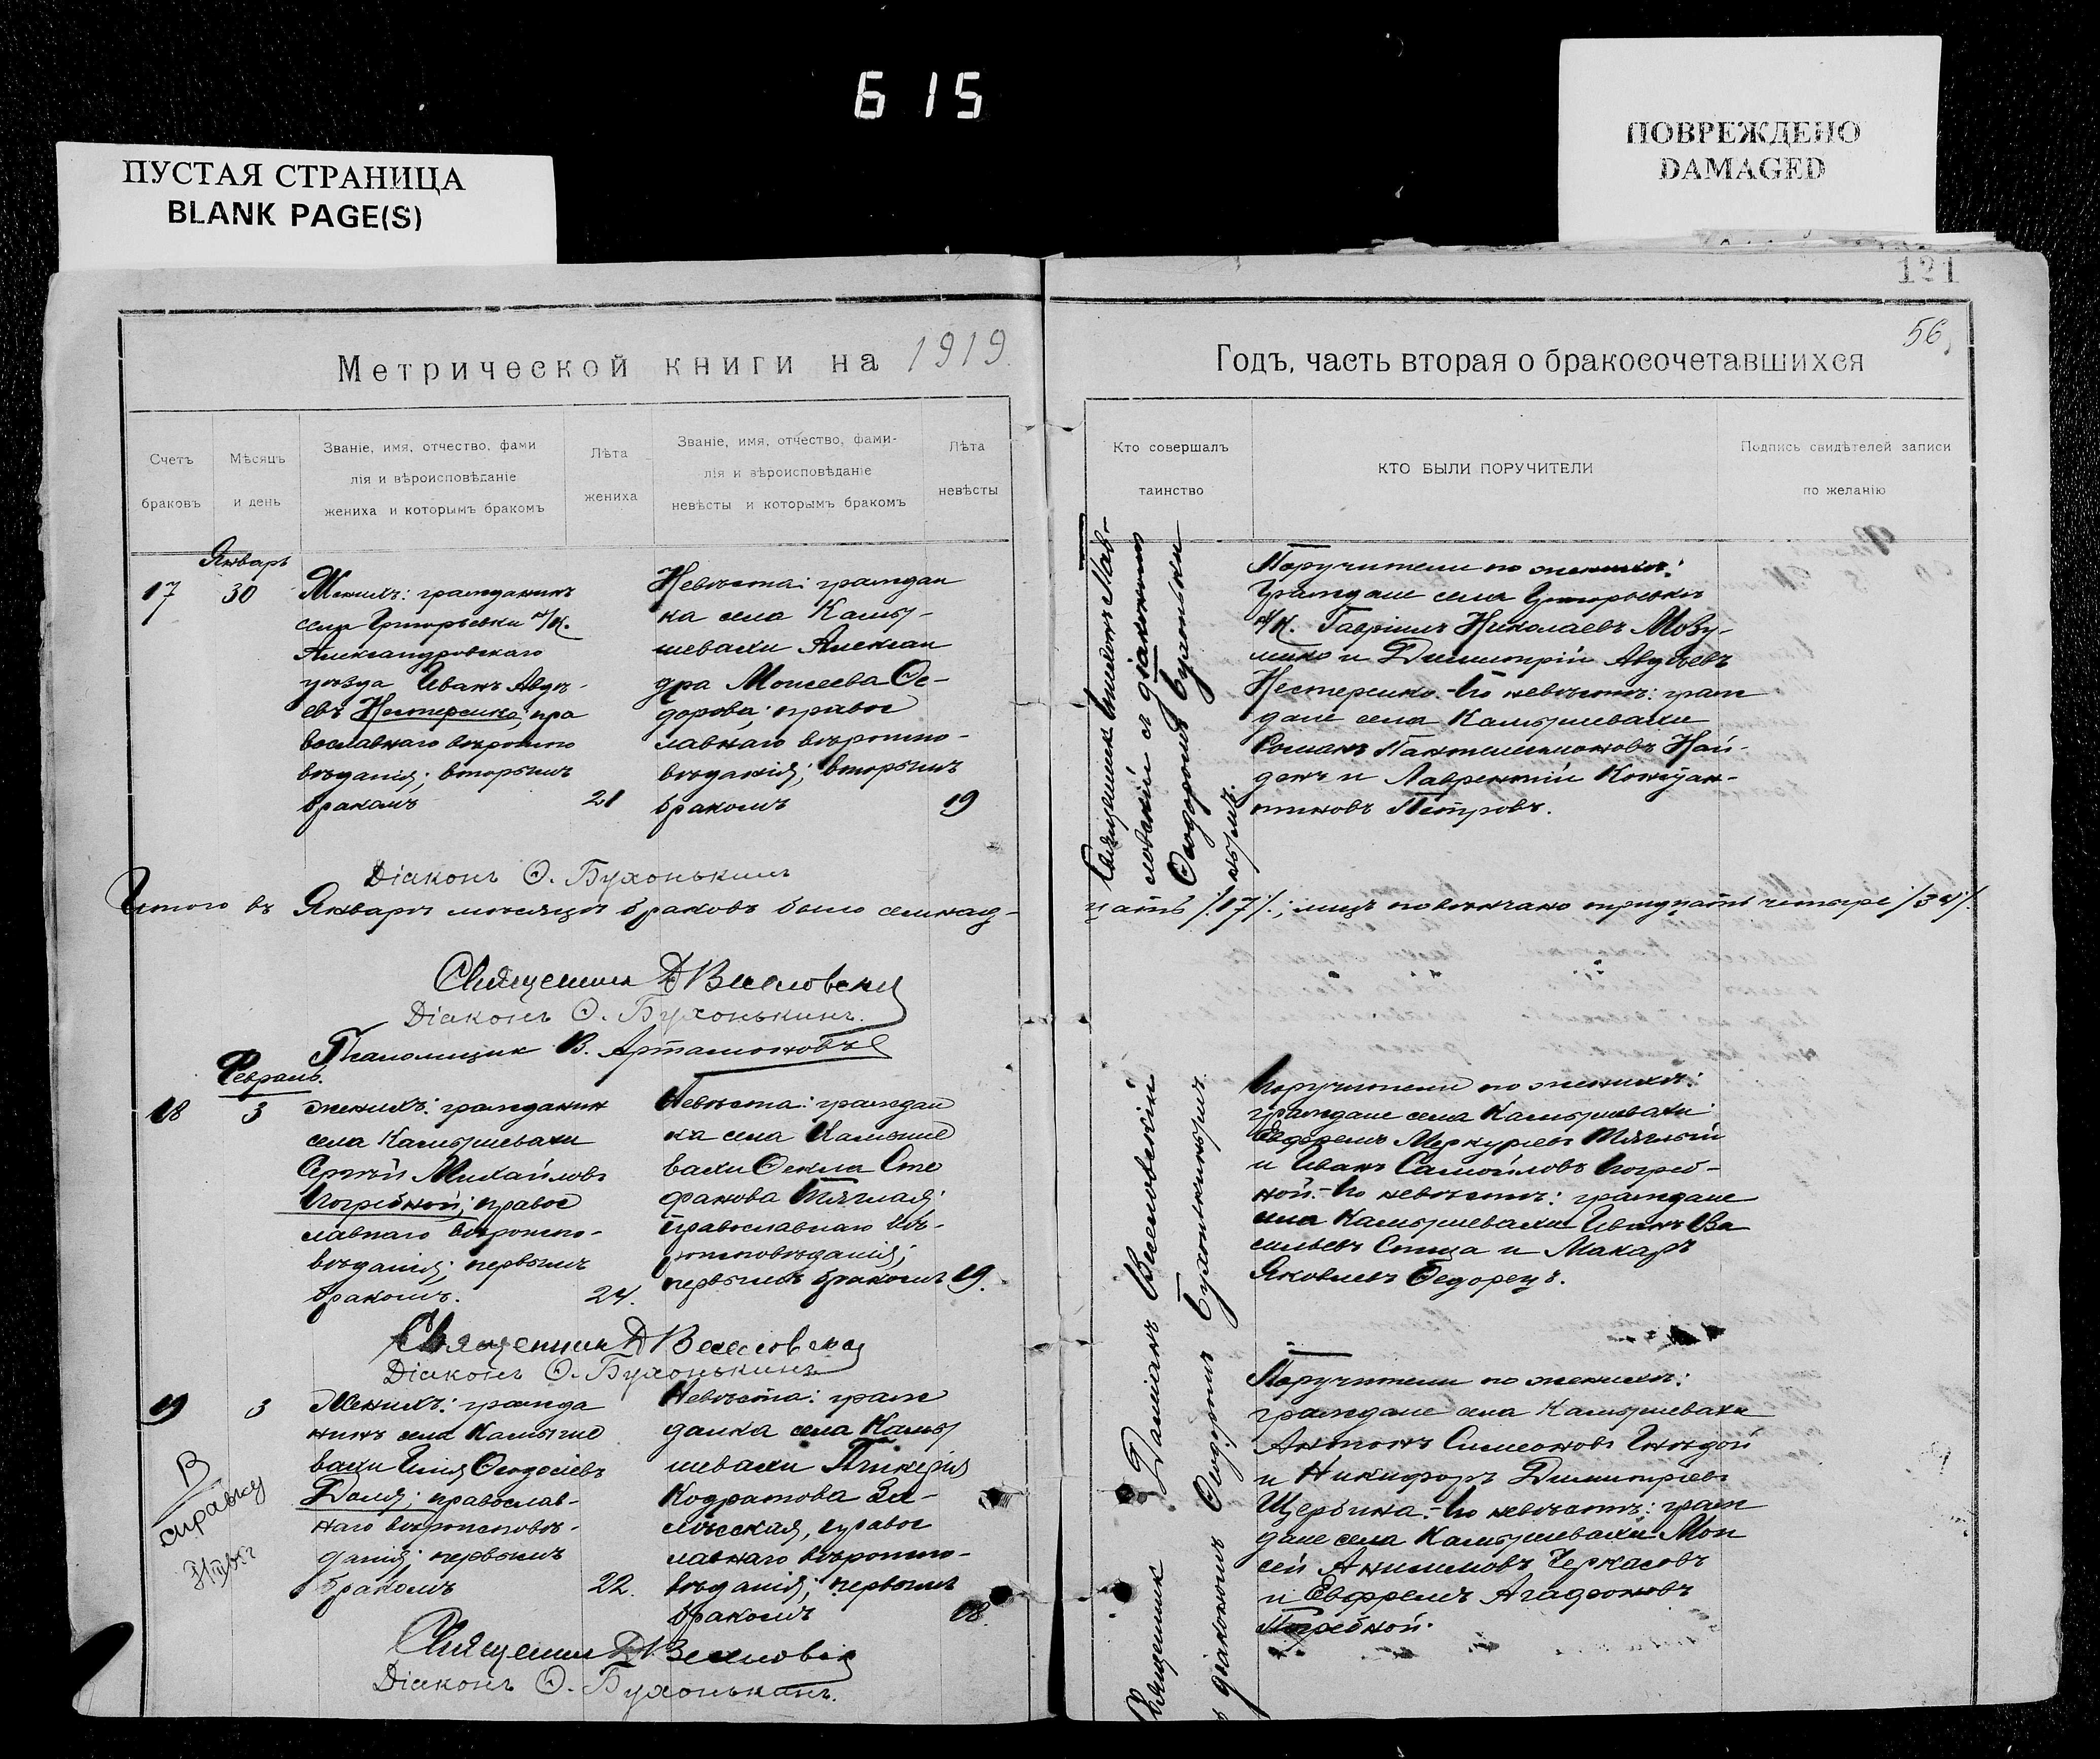 615
ПУСТАЯ СТРАНИЦА
BLANK PAGE(S)
ПОВРЕЖДЕНО
DAMAGED
121
56
Метрической книги на 1919
Годъ, часть вторая о бракосочетавшихся
Счетъ
браковъ
Мѣсяцъ
и день
Званіе, имя, отчество, фами
лія и вѣроисповѣданіе
жениха и которымъ бракомъ
Лѣта
жениха
Званіе, имя, отчество, фами-
лія и вѣроисповѣданіе
невѣсты и которымъ бракомъ
Лѣта
невѣсты
Кто совершалъ
таинство
КТО БЫЛИ ПОРУЧИТЕЛИ
Подпись свидѣтелей записи
по желанію
Январь
17
30
Женихъ: гражданинъ
села Григорьевки
Александровскаго
уѣзда Иванъ Авдѣ-
евъ Нестеренко; пра
вославнаго вѣроиспо
вѣданія; вторымъ
бракомъ
21
Невѣста: граждан
ка села Камы-
шевахи Алексан
дра Моисеева Ѳе-
дорова; правос
лавнаго вѣроиспо-
вѣданія; вторымъ
бракомъ
19
Поручители по женихѣ:
Граждане села Григорьевки
Гавріилъ Николаевъ
и Димитрій Авдѣевъ
Нестеренко.- По невѣстѣ: граж
дане села Камышевахи
Романъ Пантелимоновъ Най-
денъ и Лаврентій Констан-
тиновъ Петровъ.
Діаконъ Ѳ. Бухонькинъ
Итого въ Январѣ мѣсяцѣ браковъ было семнад-
цать /17/.; лицъ повѣнчано тридцать четыре /34/.
Священникъ Д Веселовскій
Діаконъ Ѳ. Бухонькинъ.
Псаломщикъ В. Артамоновъ
Февраль.
18
3
Женихъ: гражданин
села Камышевахи
Сергѣй Михайловъ
Погребной; правос
лавнаго вѣроиспо-
вѣданія; первымъ
бракомъ.
24.
Невѣста: граждан
ка села Камыше
вахи Ѳекла Сте
фанова Тяглая;
православнаго вѣ-
роисповѣданія;
первымъ бракомъ
19.
Священникъ Даміанъ Веселовскій
діакономъ Ѳеодоромъ Бухонькинымъ
Поручители по женихѣ:
граждане села Камышевахи
Евфремъ Меркурьевъ Тяглый
и Иванъ Самойловъ Погреб-
ной.- По невѣстѣ: граждане
села Камышевахи Иванъ Ва
сильевъ Спица и Макаръ
Яковлевъ Федорецъ.
Священник Д Веселовскій
Діаконъ Ѳ. Бухонькинъ
19
3
Женихъ: гражда
нинъ села Камыше
вахи Илія Ѳеодосіевъ
Даля; православ-
наго вѣроисповѣ-
данія; первымъ
бракомъ
22.
Невѣста: граж
данка села Камы
шевахи Гликерія
Кодратова
правос
лавнаго вѣроиспо-
вѣданія; первымъ
бракомъ
18.
В
справку
Поручители по женихѣ:
граждане села Камышевахи
Антонъ Симеоновъ
и Никифоръ Димитріевъ
Щербина.- По невѣстѣ: граж
дане села Камышевахи Мои
сей Анисимовъ Черкасовъ
и Евфремъ Агафоновъ
Погребной.
Священник Д Веселовскій
Діаконъ Ѳ. Бухонькинъ.